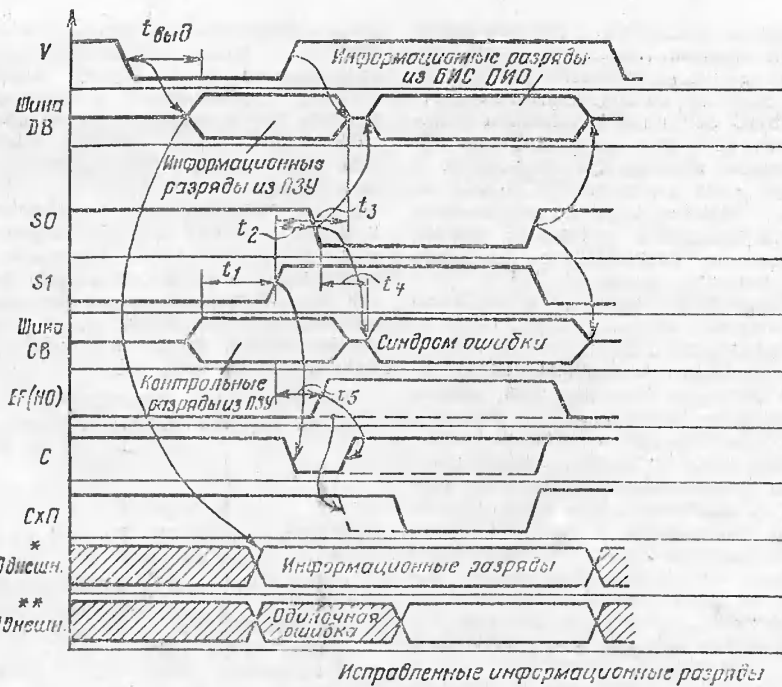 V
tвыд
Информационные разряды
из БИС ОИО
Шина
DB
Информационные
разряды из ПЗУ
S0
t2
t3
S1
t1
t4
Шина
CB
Синдром ошибки
Контрольные
разряды из ПЗУ
EF(НО)
t5
C
СхП
*
Dвнешн.
Информационные разряды
**
Dвнешн.
Одиночная
ошибка
Исправленные информационные разряды